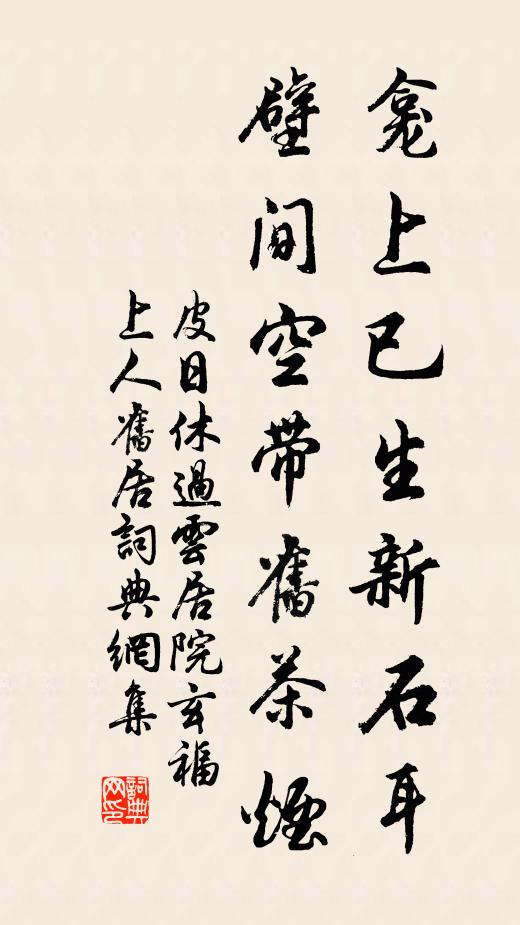 龕上已生新石耳
壁間空帶舊茶煙
皮日休過雲居院玄福
上人舊居詞典網集
詞典
网印